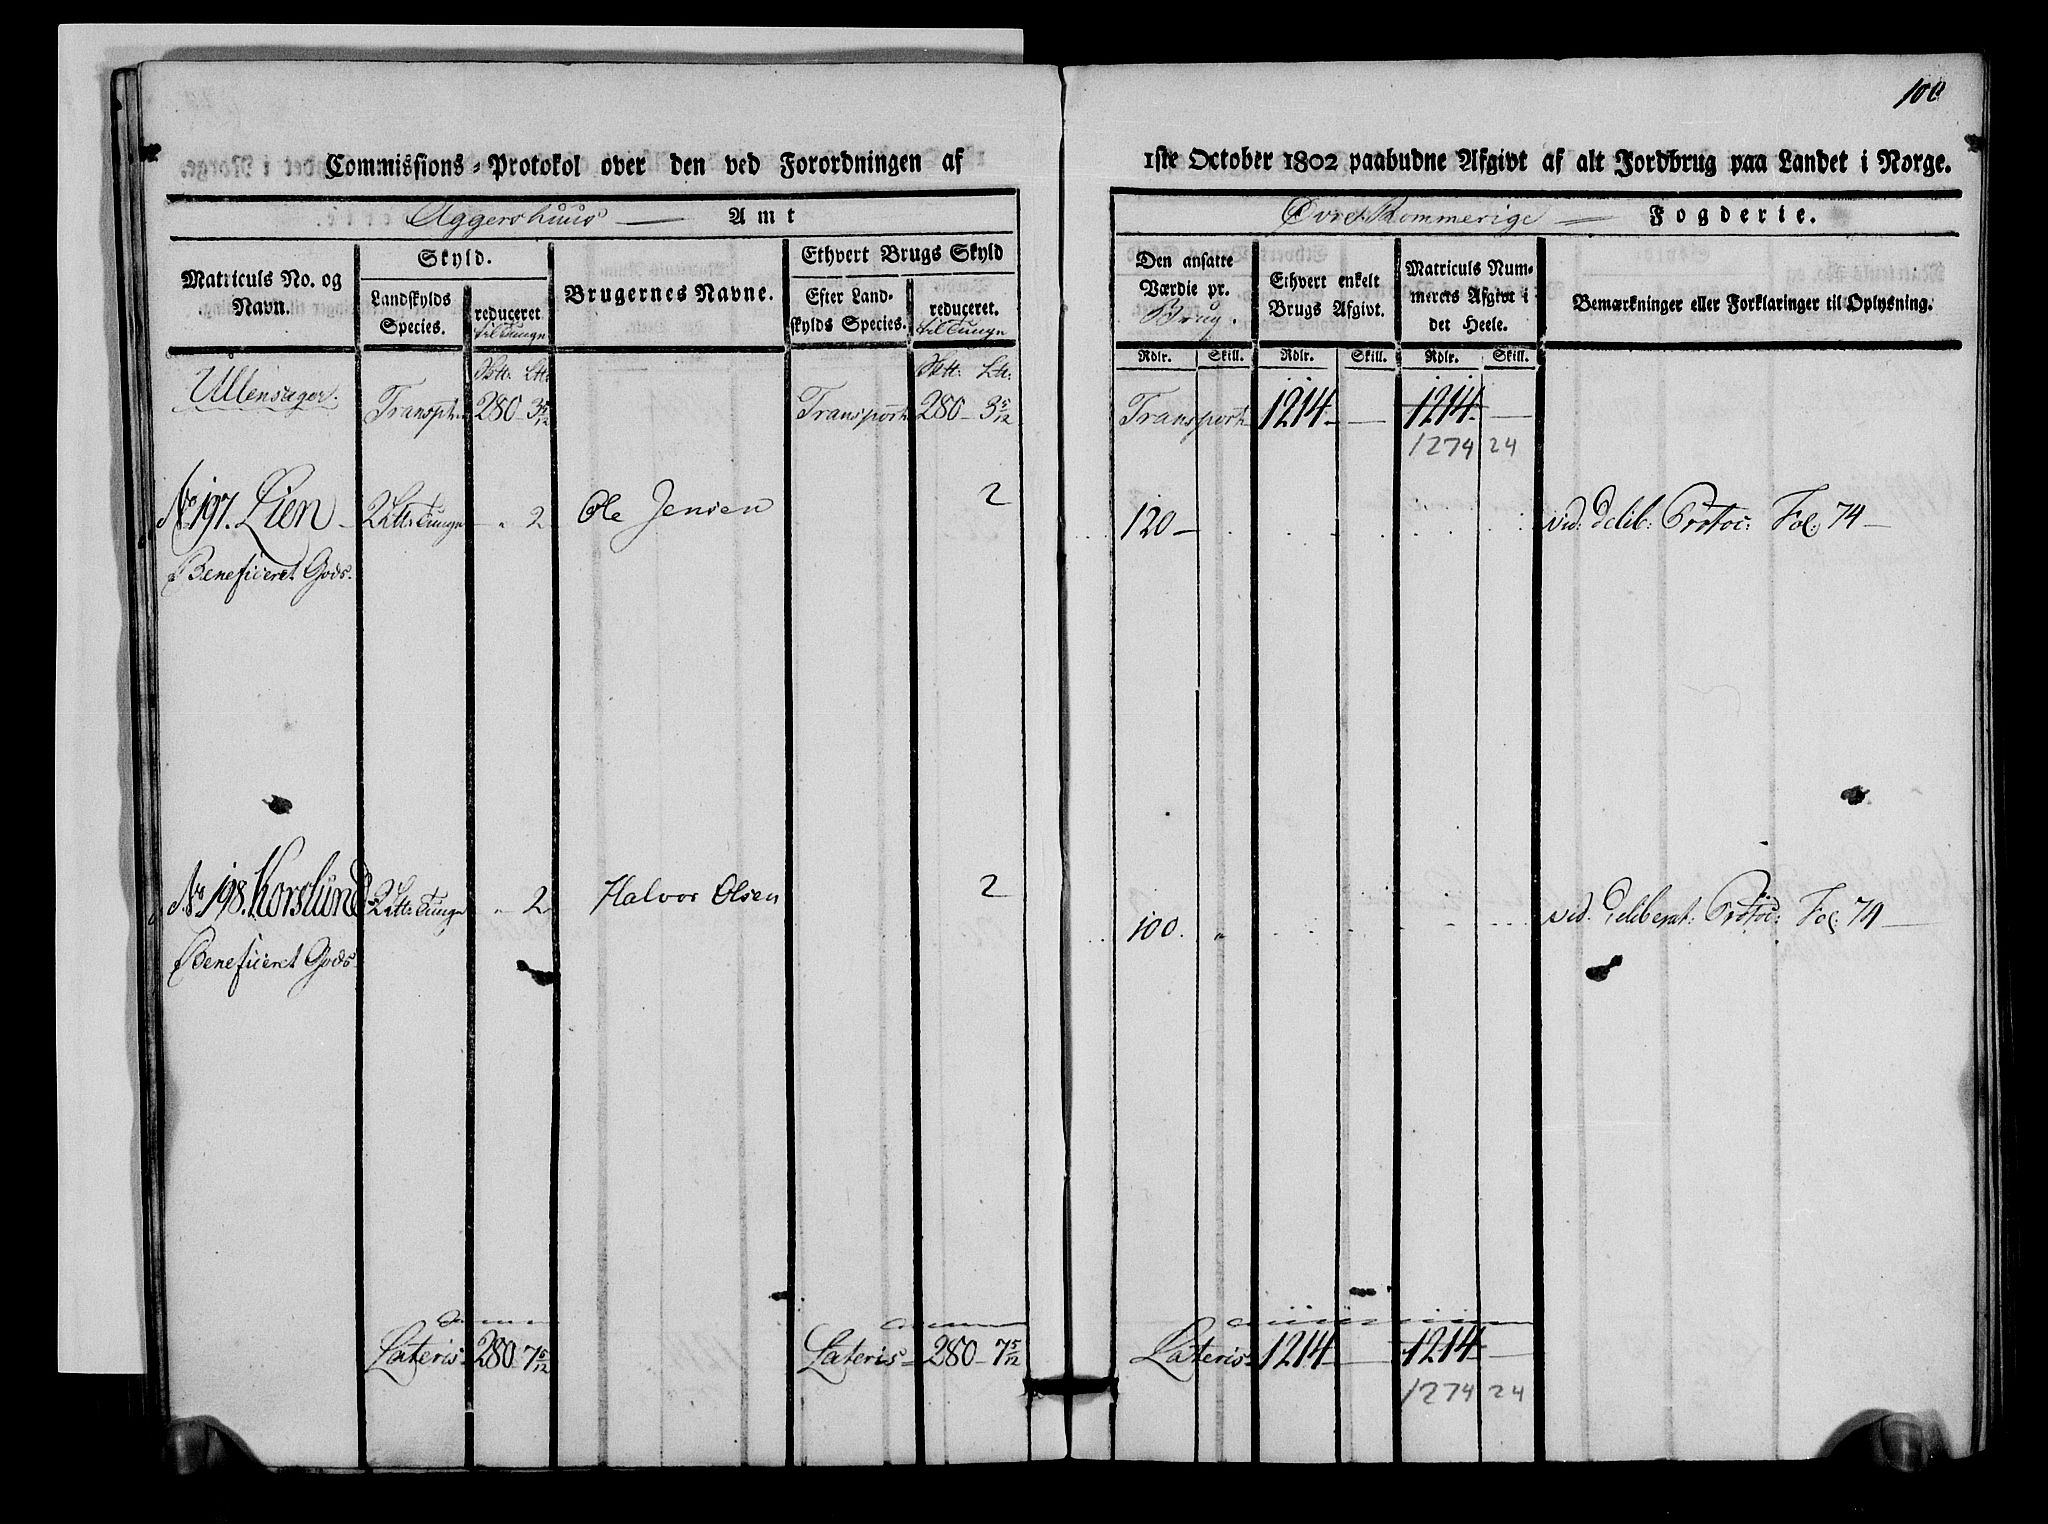 100
Commissions-Protokol over den ved Forordningen af 1ste October 1802 paabudne Afgivt af alt Jordbrug paa Landet i Norge.
Aggershuus — Amt
Øvre Rommerige — Fogderie.
Matriculs No. og Navn.
Skyld.
Landskylds Species.
reduceret til Tunge
Brugernes Navne.
Ethvert Brugs Skyld
Efter Landskylds Species.
reduceret. til Tunge
Den ansatte Værdie pr. Brug.
Ethvert enkelt Brugs Afgivt.
Matriculs Nummerets Afgivt i det Heele.
Bemærkninger eller Forklaringer til Oplysning.
Rdlr. Skill. Rdlr. Skill. Rdlr. Skill.
Ullensager. Transpt. 280 - 3 5/12 Transport 280 - 3 5/12 Transport 1214 - — 1214 - —
1274 24
No 197. Lien - 2 Ltt: Tunge - " 2 Ole Jensen 2 120 — vid: Delib: Protoc: Fol: 74 —
Beneficeret Gods.
No 198. Korslund 2 Ltt: Tunge " 2 Halvor Olsen 2 100. " vid. Deliberat: Protoc: Fol: 74 —
Beneficeret Gods
Lateris 280 - 7 5/12 Lateris - 280 - 7 5/12 Lateris 1214 - — 1214 - —
1274 24